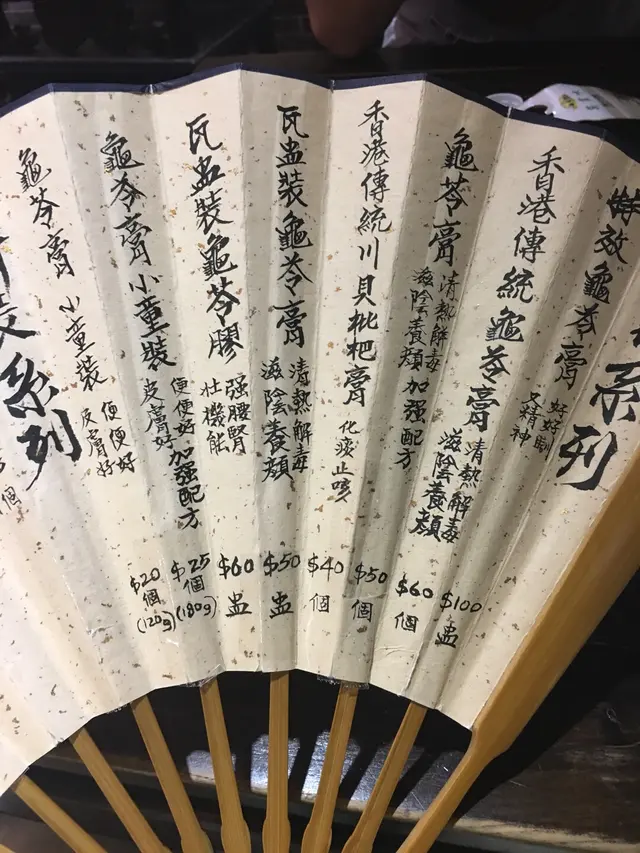 系列
特效龜苓膏
好好瞓
又精神
$100
盅
香港傳統龜苓膏
清熱解毒
滋陰養顏
$60
個
龜苓膏
清熱解毒
滋陰養顏
加强配方
$50
個
香港傳統川貝枇杷膏
化痰止咳
$40
個
瓦盅裝龜苓膏
清熱解毒
滋陰養顏
$50
盅
瓦盅裝龜苓膠
强腰腎
壯機能
$60
盅
龜苓膏小童裝
便便好
皮膚好
加强配方
$25
個
(180g)
龜苓膏小童裝
便便好
皮膚好
$20
個
(120g)
系列
個